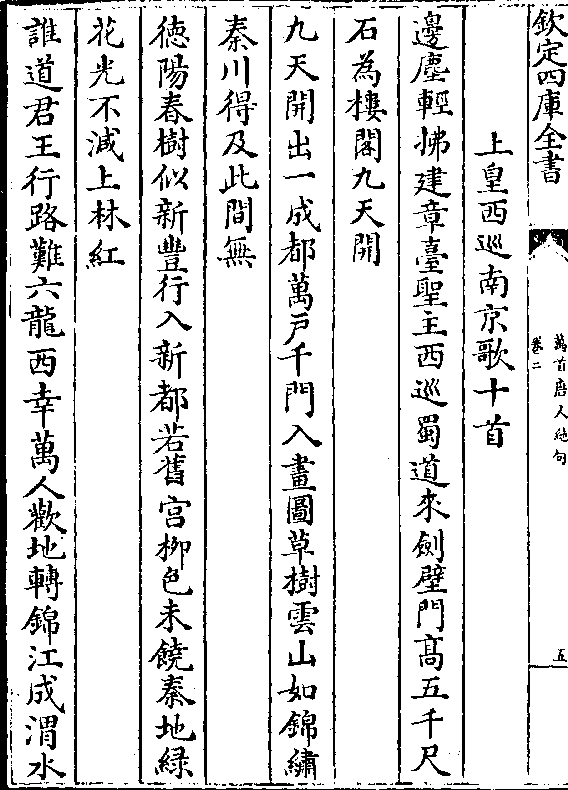 欽定四庫全書
萬首唐人絶句
卷二
五
上皇西巡南京歌十首
邊塵輕拂建章臺聖主西巡蜀道來劍壁門髙五千尺
石為樓閣九天開
九天開出一成都萬戸千門入畫圖草樹雲山如錦繡
秦川得及此間無
徳陽春樹似新豐行入新都若舊宫栁色未饒秦地緑
花光不減上林紅
誰道君王行路難六龍西幸萬人歡地轉錦江成渭水